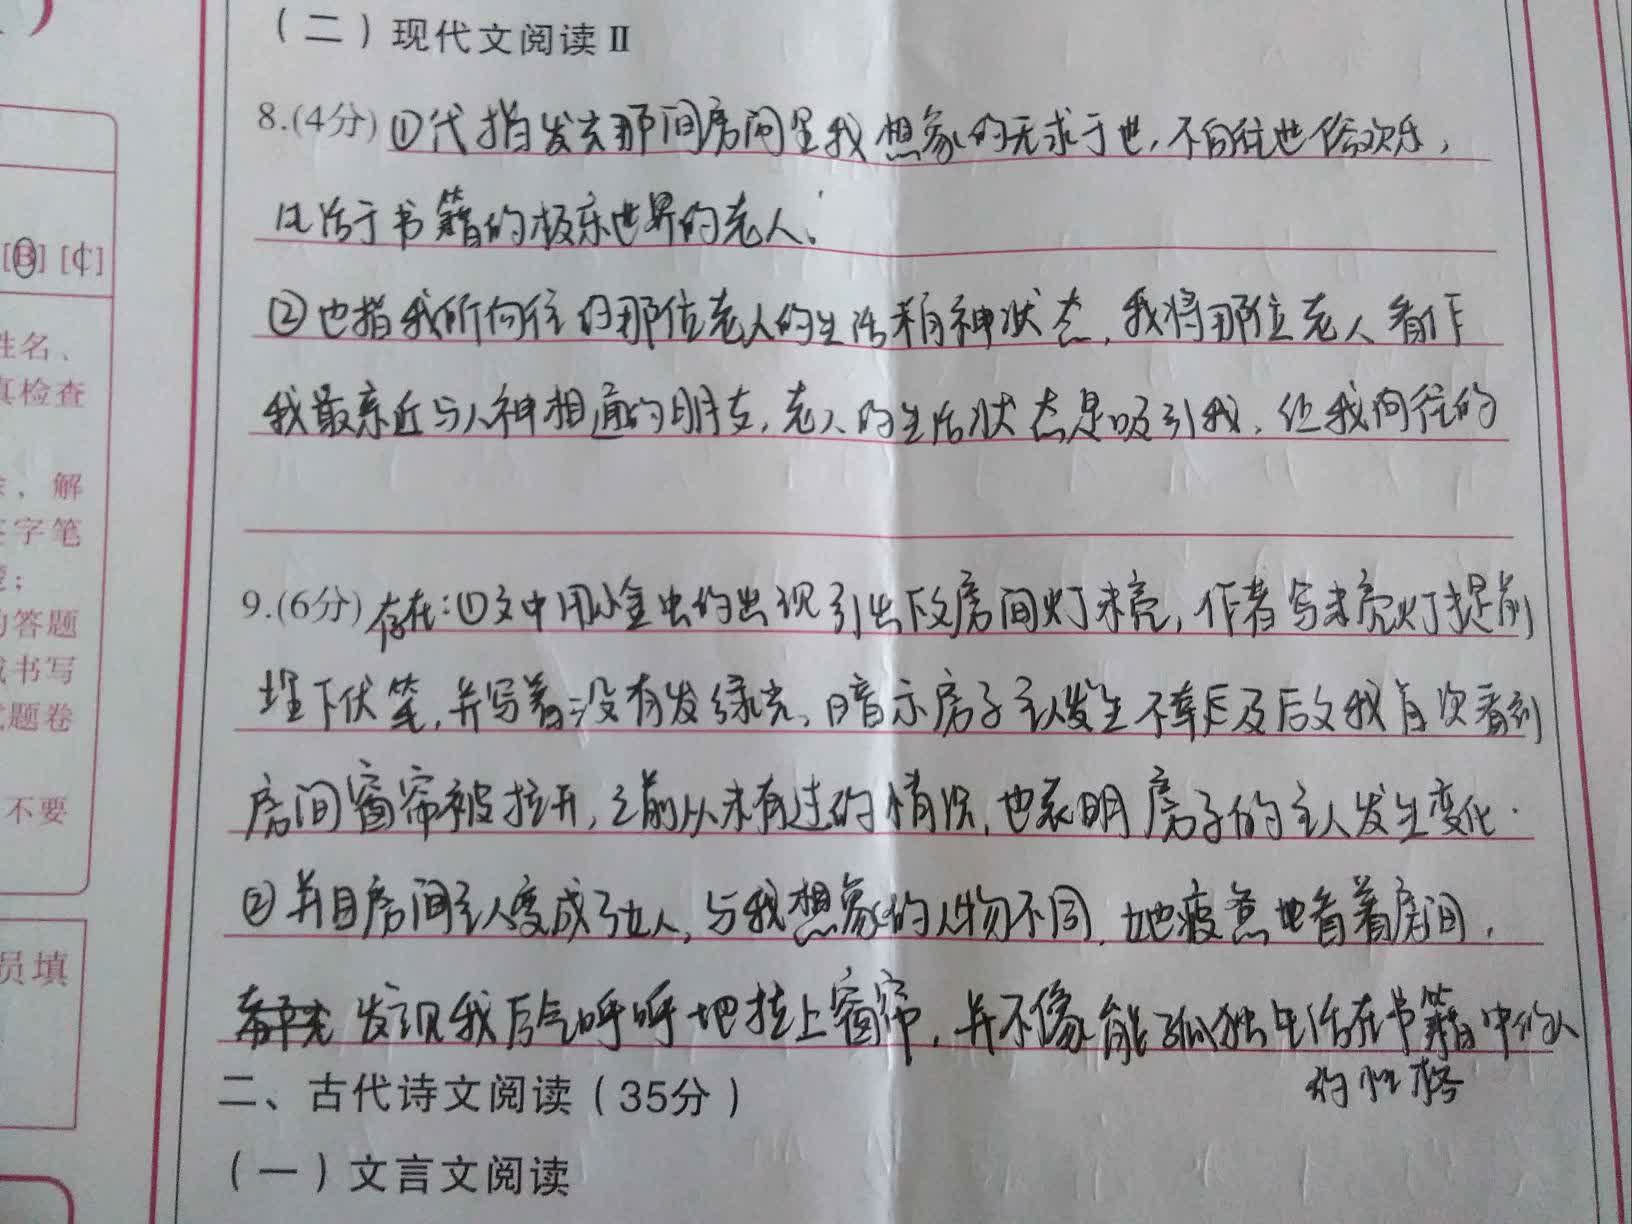 (二)现代文阅读Ⅱ
8.(4分)①代指发亮那间房间里我想象的无求于世,不向往世俗欢乐,
只活于书籍的极乐世界的老人.
②也指我所向往的那位老人的生活精神状态,我将那位老人看作
我最亲近与人神相通的朋友,老人的生活状态是吸引我,但我向往的
9.(6分)存在:①文中用小金虫的出现引出下文房间灯未亮,作者写未亮灯提前
埋下伏笔,并写着没有发绿光,暗示房子主人发生不幸后及后文我再次看到
房间窗帘被拉开,之前从未有过的情况,也表明房子的主人发生变化.
②并且房间主人变成了女人,与我想象的人物不同,她疲惫地看着房间,
发现我后气呼呼地拉上窗帘,并不像能孤独生活在书籍中的人
的性格
二、古代诗文阅读(35分)
(一)文言文阅读
[B] [C]
姓名、
真检查
、解
签字笔
;
的答题
书写
试题卷
不要
员填